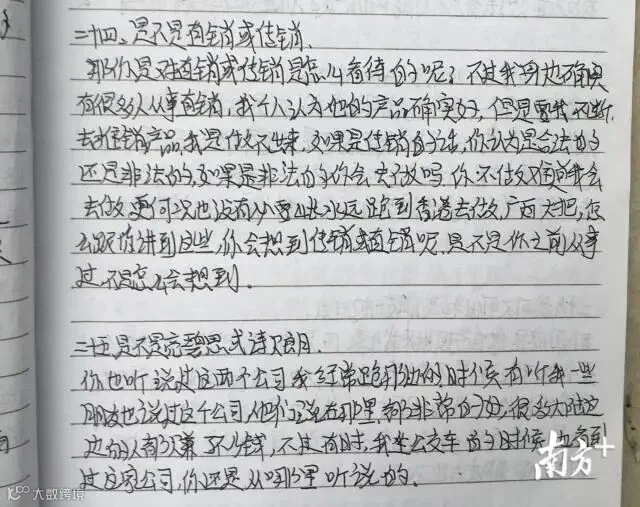 二十四、是不是直销或传销.
那你是对直销或传销是怎么看待的呢？不过我身边确实
有很多人从事直销，我个人认为他的产品确实好，但是要我不断
去推销产品，我是做不出来，如果是传销的话，你认为是合法的
还是非法的，如果是非法的你会去做吗，你不做难道我会
去做，更何况也没有必要山长水远跑到香港去做，广西大把，怎
么跟你讲到这些，你会想到传销或直销呢，是不是你之前从事
过，不是怎么会想到.
二十五、是不是完碧思或诗贝朗.
你也听说过这两个公司，我经常跑那边的时候，有听我一些
朋友也说过这个公司，他们说在那里都非常的好，很多大陆这
边的人都赚了不少钱，不过有时，我坐公交车的时候，也看到
过这家公司，你还是从哪里听说的.
南方+
大数跨境